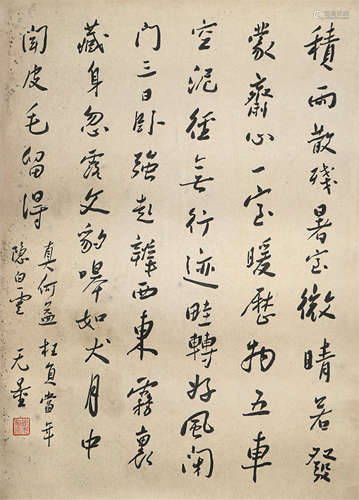 積雨散殘暑室微晴若發
蒙齋心一室暖歷物五車
空泥徑無行迹畦轉好風聞
門三日卧強起辨西東霧裏
藏身忽露文豹嗥如犬月中
聞皮毛留得
真何益枉負當年
隐白雲 无量